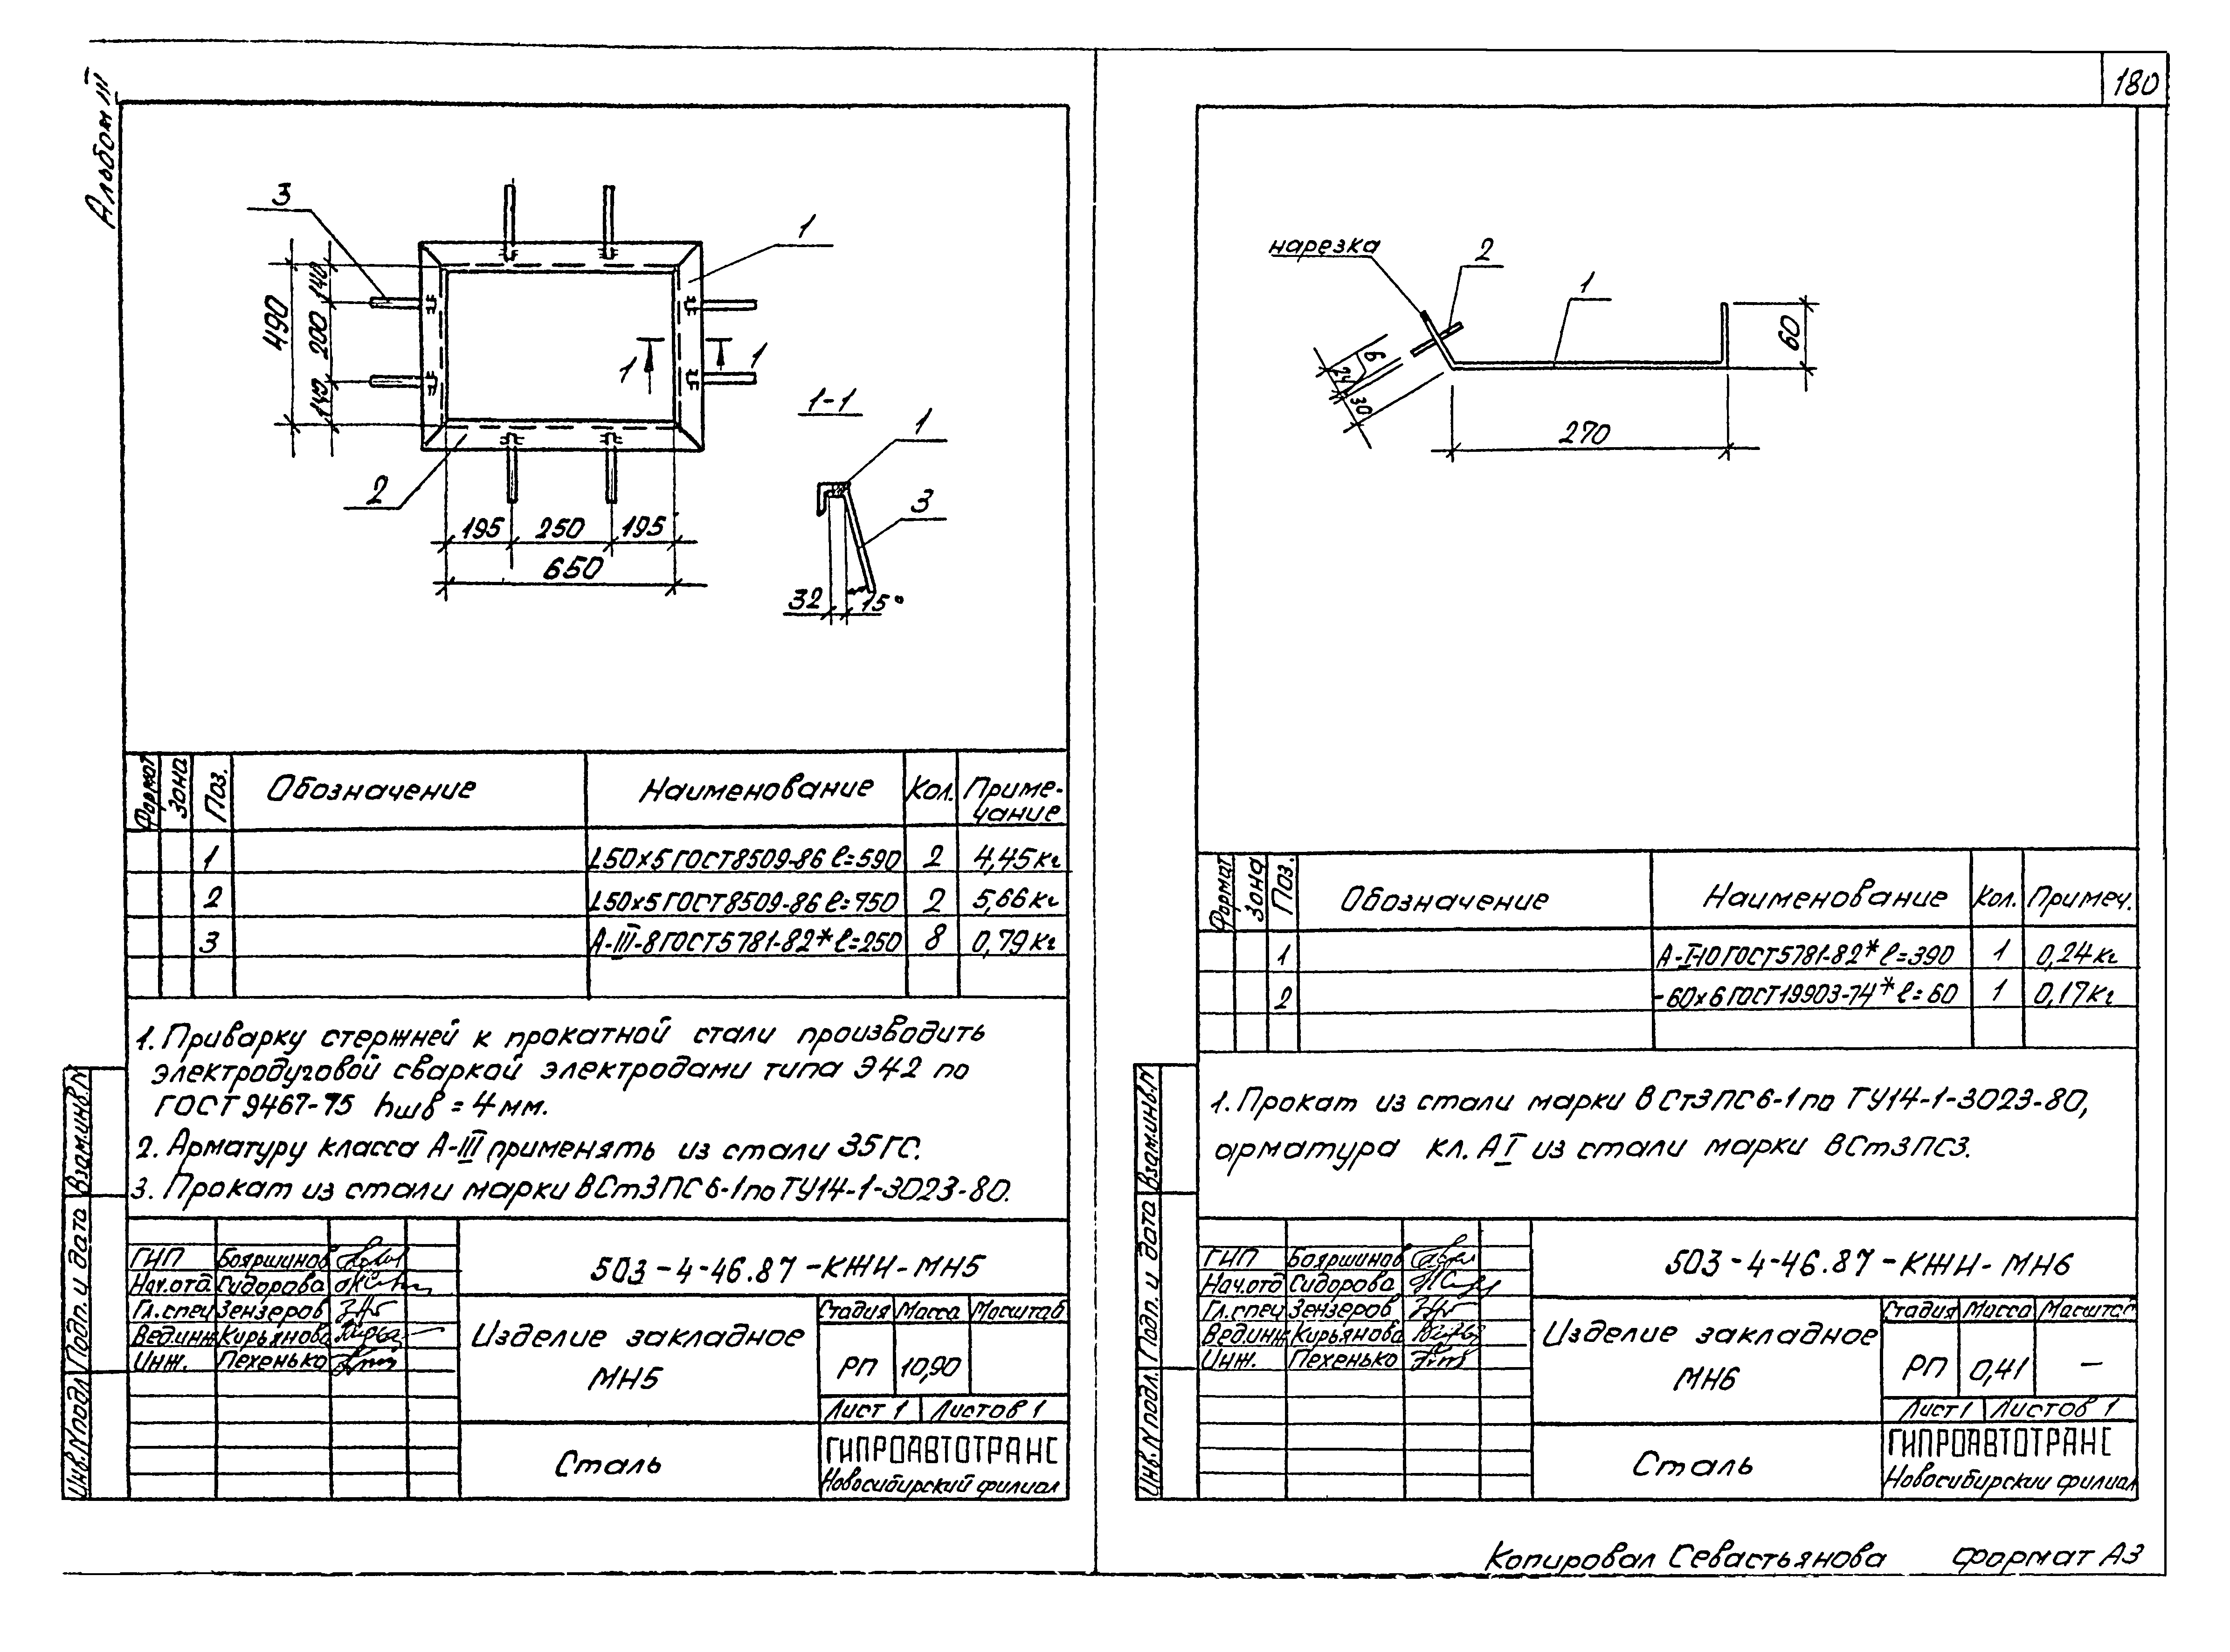 Альбом III
3
1
140
200
140
490
1
1
2
195 250 195
650
1-1
1
3
32 15°
Формат Зона Поз. Обозначение Наименование Кол. Приме-
чание
1 L50×5 ГОСТ 8509-86 ℓ=590 2 4,45кг
2 L50×5 ГОСТ 8509-86 ℓ=750 2 5,66кг
3 А-III-8 ГОСТ 5781-82* ℓ=250 8 0,79кг
1. Приварку стержней к прокатной стали производить
электродуговой сваркой электродами типа Э42 по
ГОСТ 9467-75 hшв = 4мм.
2. Арматуру класса А-III применять из стали 35ГС.
3. Прокат из стали марки ВСт3ПС6-1 по ТУ14-1-3023-80.
Взам.инв.N
Подп. и дата
Инв.N подл
ГИП Бояршинов
Нач.отд. Сидорова
Гл.спец Зензеров
Вед.инж. Кирьянова
Инж. Пехенько
503-4-46.87-КЖИ-МН5
Изделие закладное
МН5
Стадия Масса Масштаб
РП 10,90
Лист 1 Листов 1
Сталь
ГИПРОАВТОТРАНС
Новосибирский филиал
180
нарезка
2
1
60
6
24
30
270
Формат Зона Поз. Обозначение Наименование Кол. Примеч.
1 А-I-10 ГОСТ 5781-82* ℓ=390 1 0,24кг
2 -60×6 ГОСТ 19903-74* ℓ=60 1 0,17кг
1. Прокат из стали марки ВСт3ПС6-1 по ТУ14-1-3023-80,
арматура кл. АI из стали марки ВСт3ПС3.
Взам.инв.N
Подп. и дата
Инв.N подл.
ГИП Бояршинов
Нач.отд Сидорова
Гл.спец Зензеров
Вед.инж. Кирьянова
Инж. Пехенько
503-4-46.87-КЖИ-МН6
Изделие закладное
МН6
Стадия Масса Масштаб
РП 0,41 —
Лист 1 Листов 1
Сталь
ГИПРОАВТОТРАНС
Новосибирский филиал
Копировал Севастьянова формат А3